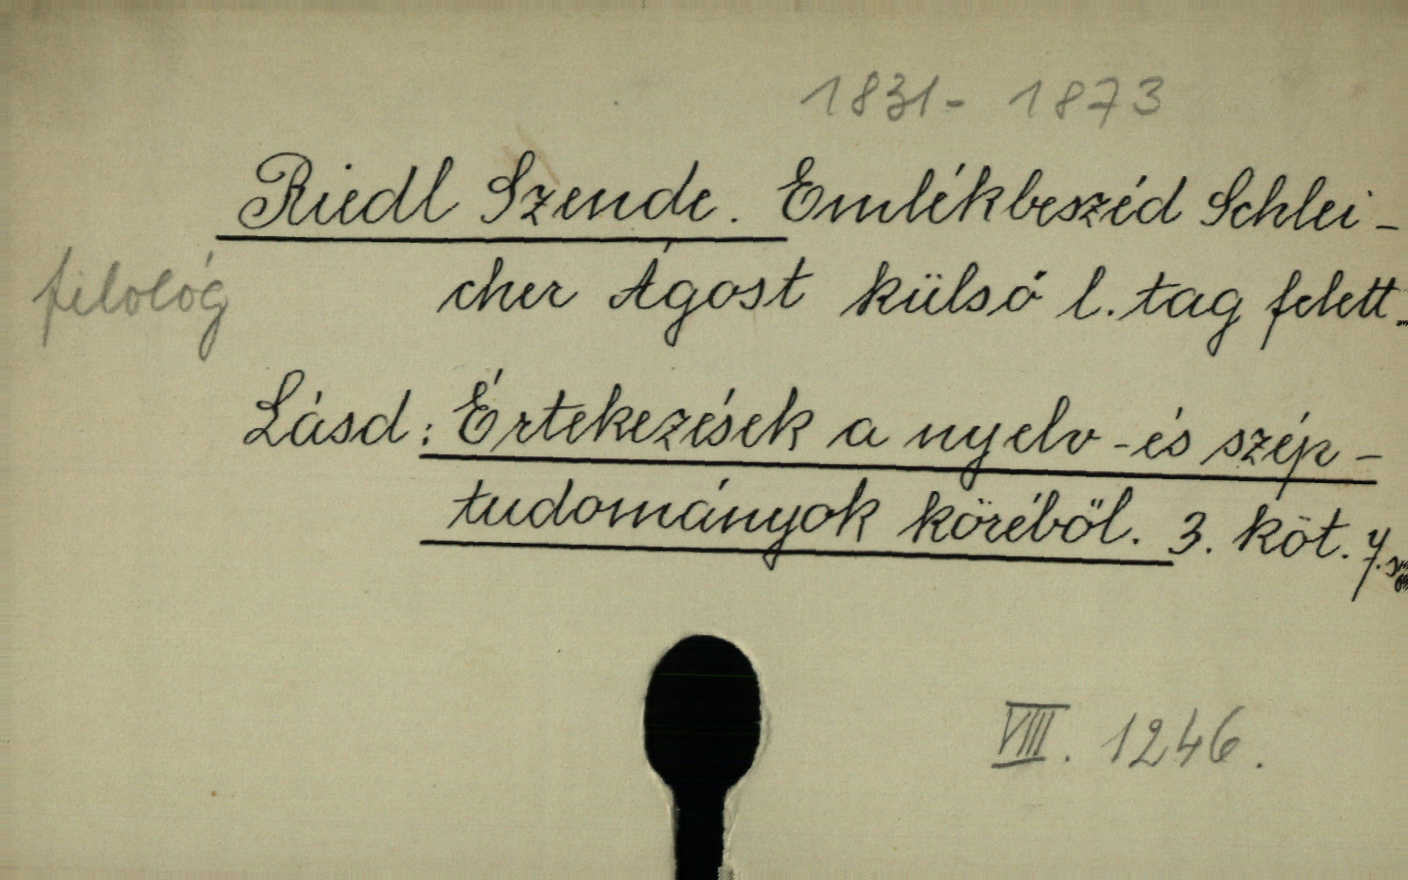 1831- 1873
Riedl Szende. Emlékbeszéd Schlei-
filológ
cher Ágost külső l. tag felett.
Lásd: Értekezések a nyelv-és szép-
tudományok köréből. 3. köt. 7.
VIII. 1246.